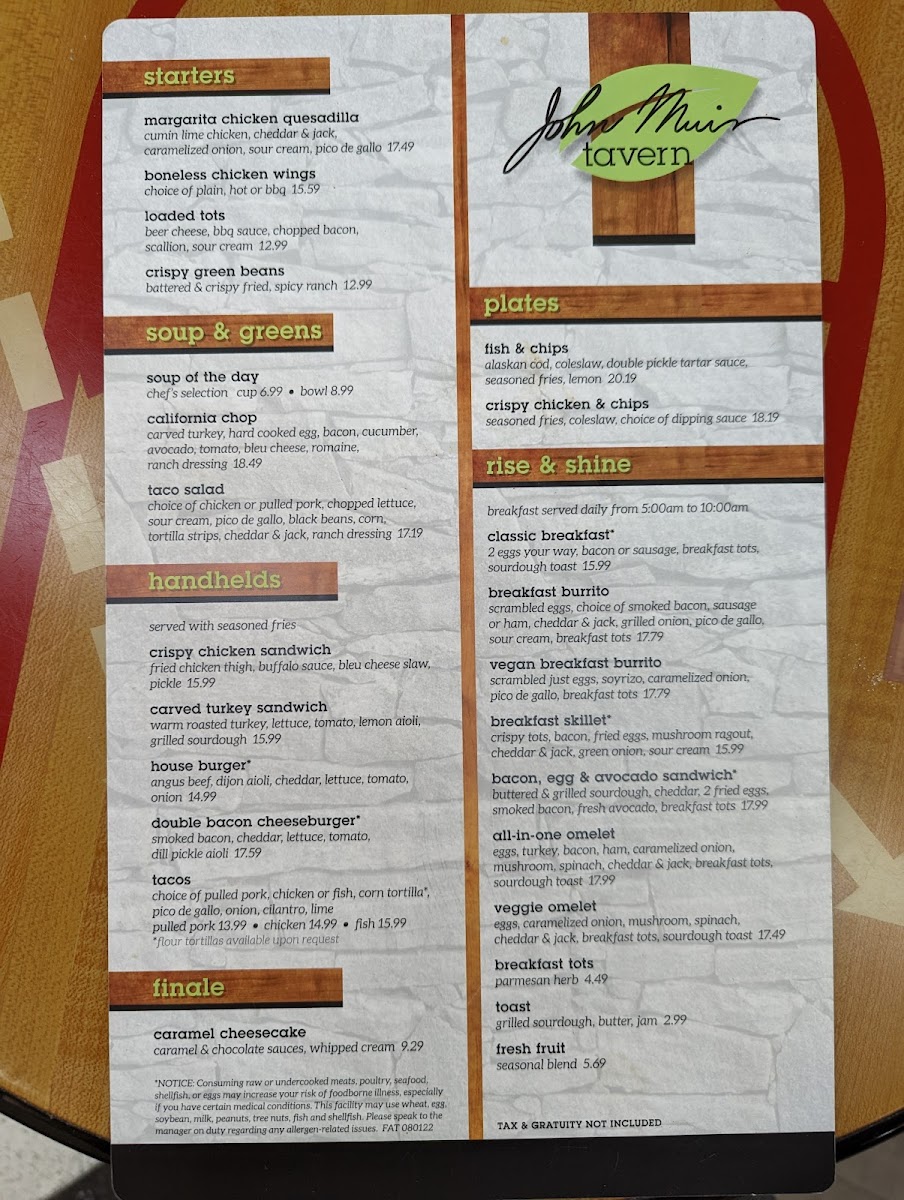 starters
margarita chicken quesadilla
cumin lime chicken, cheddar & jack,
caramelized onion, sour cream, pico de gallo 17.49
boneless chicken wings
choice of plain, hot or bbq 15.59
loaded tots
beer cheese, bbq sauce, chopped bacon,
scallion, sour cream 12.99
crispy green beans
battered & crispy fried, spicy ranch 12.99
soup & greens
soup of the day
chef's selection cup 6.99 • bowl 8.99
california chop
carved turkey, hard cooked egg, bacon, cucumber,
avocado, tomato, bleu cheese, romaine,
ranch dressing 18.49
taco salad
choice of chicken or pulled pork, chopped lettuce,
sour cream, pico de gallo, black beans, corn,
tortilla strips, cheddar & jack, ranch dressing 17.19
handhelds
served with seasoned fries
crispy chicken sandwich
fried chicken thigh, buffalo sauce, bleu cheese slaw,
pickle 15.99
carved turkey sandwich
warm roasted turkey, lettuce, tomato, lemon aioli,
grilled sourdough 15.99
house burger*
angus beef, dijon aioli, cheddar, lettuce, tomato,
onion 14.99
double bacon cheeseburger*
smoked bacon, cheddar, lettuce, tomato,
dill pickle aioli 17.59
tacos
choice of pulled pork, chicken or fish, corn tortilla*,
pico de gallo, onion, cilantro, lime
pulled pork 13.99 • chicken 14.99 • fish 15.99
*flour tortillas available upon request
finale
caramel cheesecake
caramel & chocolate sauces, whipped cream 9.29
*NOTICE: Consuming raw or undercooked meats, poultry, seafood,
shellfish, or eggs may increase your risk of foodborne illness, especially
if you have certain medical conditions. This facility may use wheat, egg,
soybean, milk, peanuts, tree nuts, fish and shellfish. Please speak to the
manager on duty regarding any allergen-related issues. FAT 080122
John Muir
tavern
plates
fish & chips
alaskan cod, coleslaw, double pickle tartar sauce,
seasoned fries, lemon 20.19
crispy chicken & chips
seasoned fries, coleslaw, choice of dipping sauce 18.19
rise & shine
breakfast served daily from 5:00am to 10:00am
classic breakfast*
2 eggs your way, bacon or sausage, breakfast tots,
sourdough toast 15.99
breakfast burrito
scrambled eggs, choice of smoked bacon, sausage
or ham, cheddar & jack, grilled onion, pico de gallo,
sour cream, breakfast tots 17.79
vegan breakfast burrito
scrambled just eggs, soyrizo, caramelized onion,
pico de gallo, breakfast tots 17.79
breakfast skillet*
crispy tots, bacon, fried eggs, mushroom ragout,
cheddar & jack, green onion, sour cream 15.99
bacon, egg & avocado sandwich*
buttered & grilled sourdough, cheddar, 2 fried eggs,
smoked bacon, fresh avocado, breakfast tots 17.99
all-in-one omelet
eggs, turkey, bacon, ham, caramelized onion,
mushroom, spinach, cheddar & jack, breakfast tots,
sourdough toast 17.99
veggie omelet
eggs, caramelized onion, mushroom, spinach,
cheddar & jack, breakfast tots, sourdough toast 17.49
breakfast tots
parmesan herb 4.49
toast
grilled sourdough, butter, jam 2.99
fresh fruit
seasonal blend 5.69
TAX & GRATUITY NOT INCLUDED